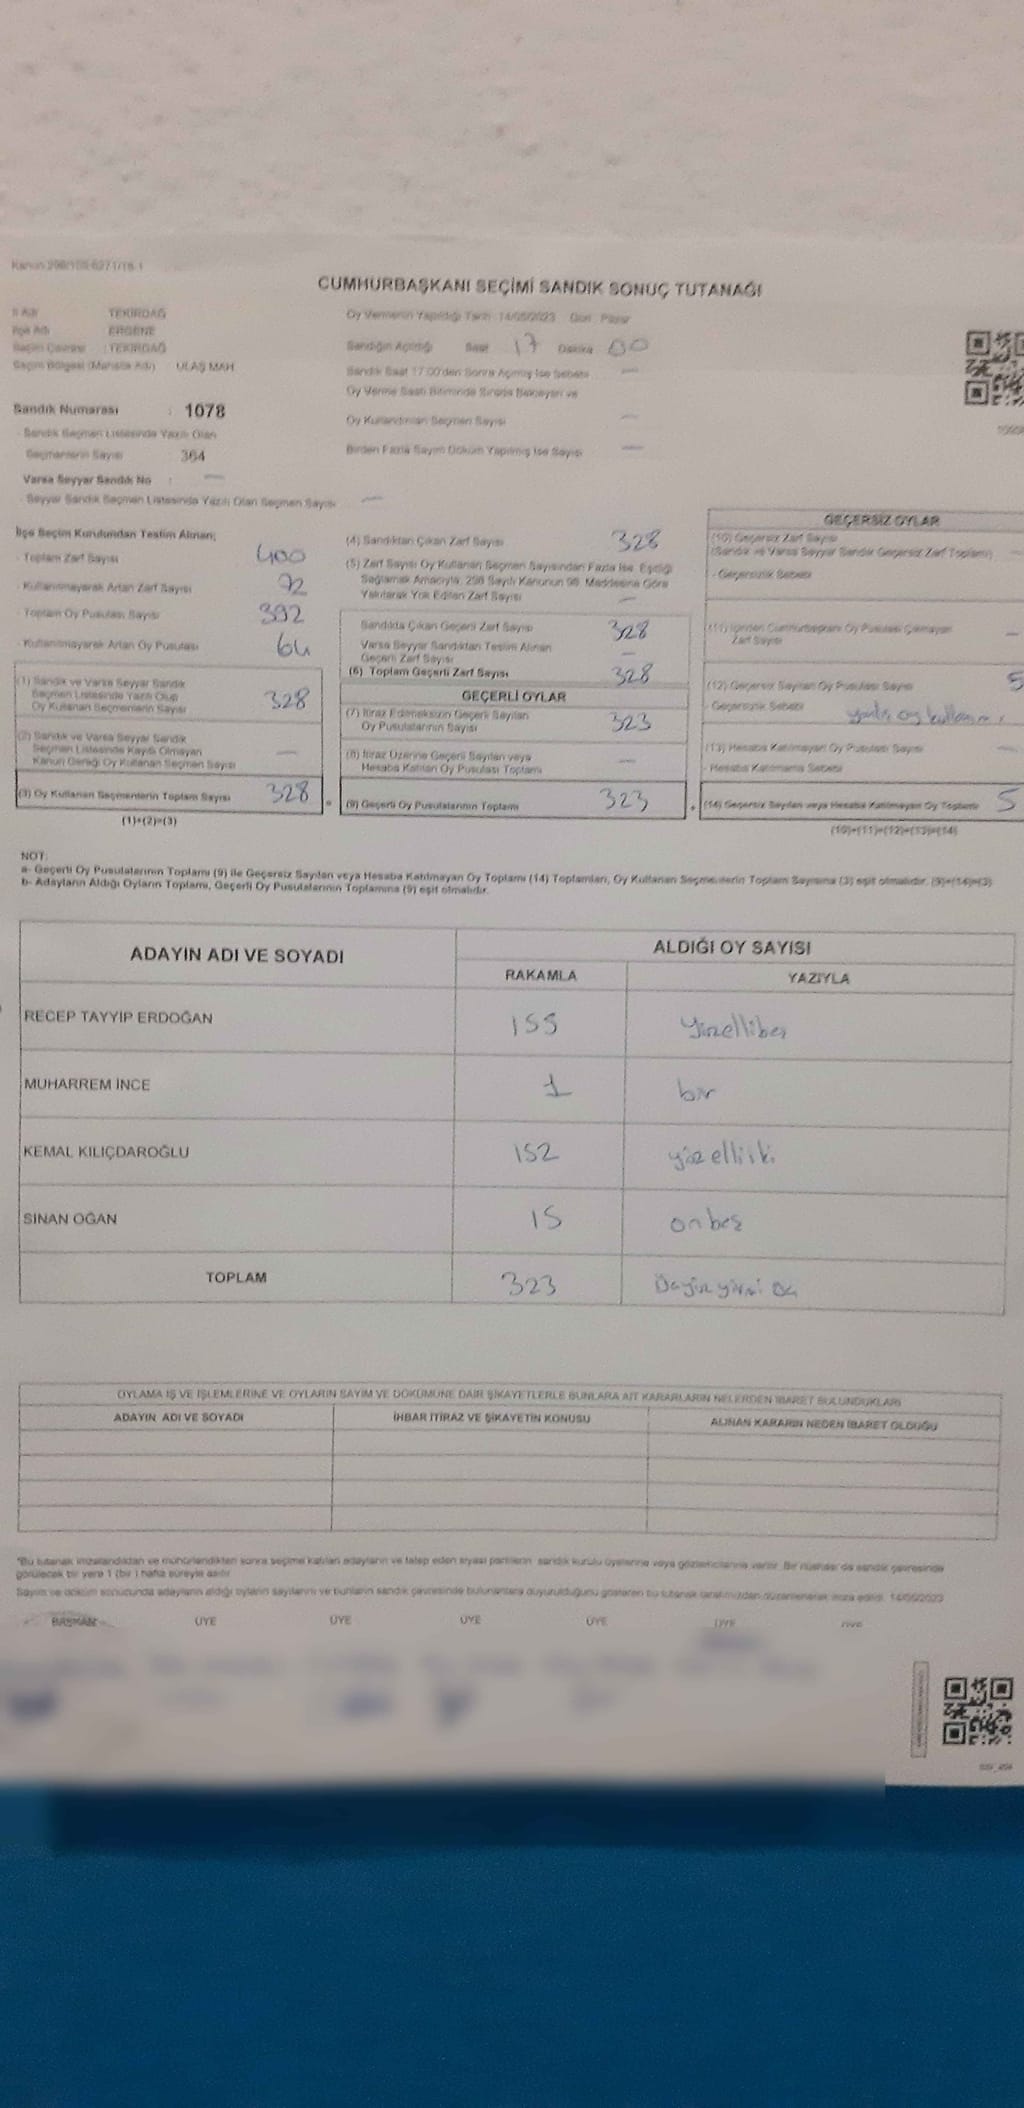 CUMHURBAŞKANI SEÇİMİ SANDIK SONUÇ TUTANAĞI
İl Adı : TEKİRDAĞ
İlçe Adı : ERGENE
Seçim Çevresi : TEKİRDAĞ
Seçim Bölgesi (Mahalle Adı) : ULAŞ MAH
Sandık Numarası : 1078
- Sandık Seçmen Listesinde Yazılı Olan
Seçmenlerin Sayısı 364
Varsa Seyyar Sandık No : —
- Seyyar Sandık Seçmen Listesinde Yazılı Olan Seçmen Sayısı —
Oy Vermenin Yapıldığı Tarih : 14/05/2023 Gün : Pazar
Sandığın Açıldığı Saat 17 Dakika 00
Sandık Saat 17:00'den Sonra Açılmış İse Sebebi —
Oy Verme Saati Bitiminde Sırada Bekleyen ve
Oy Kullandırılan Seçmen Sayısı —
Birden Fazla Sayım Döküm Yapılmış İse Sayısı —
İlçe Seçim Kurulundan Teslim Alınan;
- Toplam Zarf Sayısı 400
- Kullanılmayarak Artan Zarf Sayısı 72
- Toplam Oy Pusulası Sayısı 392
- Kullanılmayarak Artan Oy Pusulası 64
(1) Sandık ve Varsa Seyyar Sandık
Seçmen Listesinde Yazılı Olup
Oy Kullanan Seçmenlerin Sayısı 328
(2) Sandık ve Varsa Seyyar Sandık
Seçmen Listesinde Kayıtlı Olmayan
Kanun Gereği Oy Kullanan Seçmen Sayısı —
(3) Oy Kullanan Seçmenlerin Toplam Sayısı 328
(1)+(2)=(3)
(4) Sandıktan Çıkan Zarf Sayısı 328
(5) Zarf Sayısı Oy Kullanan Seçmen Sayısından Fazla İse, Eşitliği
Sağlamak Amacıyla, 298 Sayılı Kanunun 98. Maddesine Göre
Yakılarak Yok Edilen Zarf Sayısı —
Sandıkta Çıkan Geçerli Zarf Sayısı 328
Varsa Seyyar Sandıktan Teslim Alınan
Geçerli Zarf Sayısı —
(6) Toplam Geçerli Zarf Sayısı 328
GEÇERLİ OYLAR
(7) İtiraz Edilmeksizin Geçerli Sayılan
Oy Pusulalarının Sayısı 323
(8) İtiraz Üzerine Geçerli Sayılan veya
Hesaba Katılan Oy Pusulası Toplamı —
= (9) Geçerli Oy Pusulalarının Toplamı 323
GEÇERSİZ OYLAR
(10) Geçersiz Zarf Sayısı
(Sandık ve Varsa Seyyar Sandık Geçersiz Zarf Toplamı) —
- Geçersizlik Sebebi
(11) İçinden Cumhurbaşkanı Oy Pusulası Çıkmayan
Zarf Sayısı —
(12) Geçersiz Sayılan Oy Pusulası Sayısı 5
- Geçersizlik Sebebi yanlış oy kullanımı
(13) Hesaba Katılmayan Oy Pusulası Sayısı —
- Hesaba Katılmama Sebebi
+ (14) Geçersiz Sayılan veya Hesaba Katılmayan Oy Toplamı 5
(10)+(11)+(12)+(13)=(14)
NOT:
a- Geçerli Oy Pusulalarının Toplamı (9) ile Geçersiz Sayılan veya Hesaba Katılmayan Oy Toplamı (14) Toplamları, Oy Kullanan Seçmenlerin Toplam Sayısına (3) eşit olmalıdır. (9)+(14)=(3)
b- Adayların Aldığı Oyların Toplamı, Geçerli Oy Pusulalarının Toplamına (9) eşit olmalıdır.
ADAYIN ADI VE SOYADI ALDIĞI OY SAYISI
RAKAMLA YAZIYLA
RECEP TAYYİP ERDOĞAN 155 yüzellibeş
MUHARREM İNCE 1 bir
KEMAL KILIÇDAROĞLU 152 yüzelliiki
SİNAN OĞAN 15 onbeş
TOPLAM 323 Üçyüzyirmi üç
OYLAMA İŞ VE İŞLEMLERİNE VE OYLARIN SAYIM VE DÖKÜMÜNE DAİR ŞİKAYETLERLE BUNLARA AİT KARARLARIN NELERDEN İBARET BULUNDUKLARI
ADAYIN ADI VE SOYADI İHBAR İTİRAZ VE ŞİKAYETİN KONUSU ALINAN KARARIN NEDEN İBARET OLDUĞU
*Bu tutanak imzalandıktan ve mühürlendikten sonra seçime katılan adayların ve talep eden siyasi partilerin sandık kurulu üyelerine veya gözlemcilerine verilir. Bir nüshası da sandık çevresinde
görülecek bir yere 1 (bir) hafta süreyle asılır.
Sayım ve döküm sonucunda adayların aldığı oyların sayılarını ve bunların sandık çevresinde bulunanlara duyurulduğunu gösteren bu tutanak tarafımızdan düzenlenerek imza edildi. 14/05/2023
BAŞKAN ÜYE ÜYE ÜYE ÜYE ÜYE ÜYE